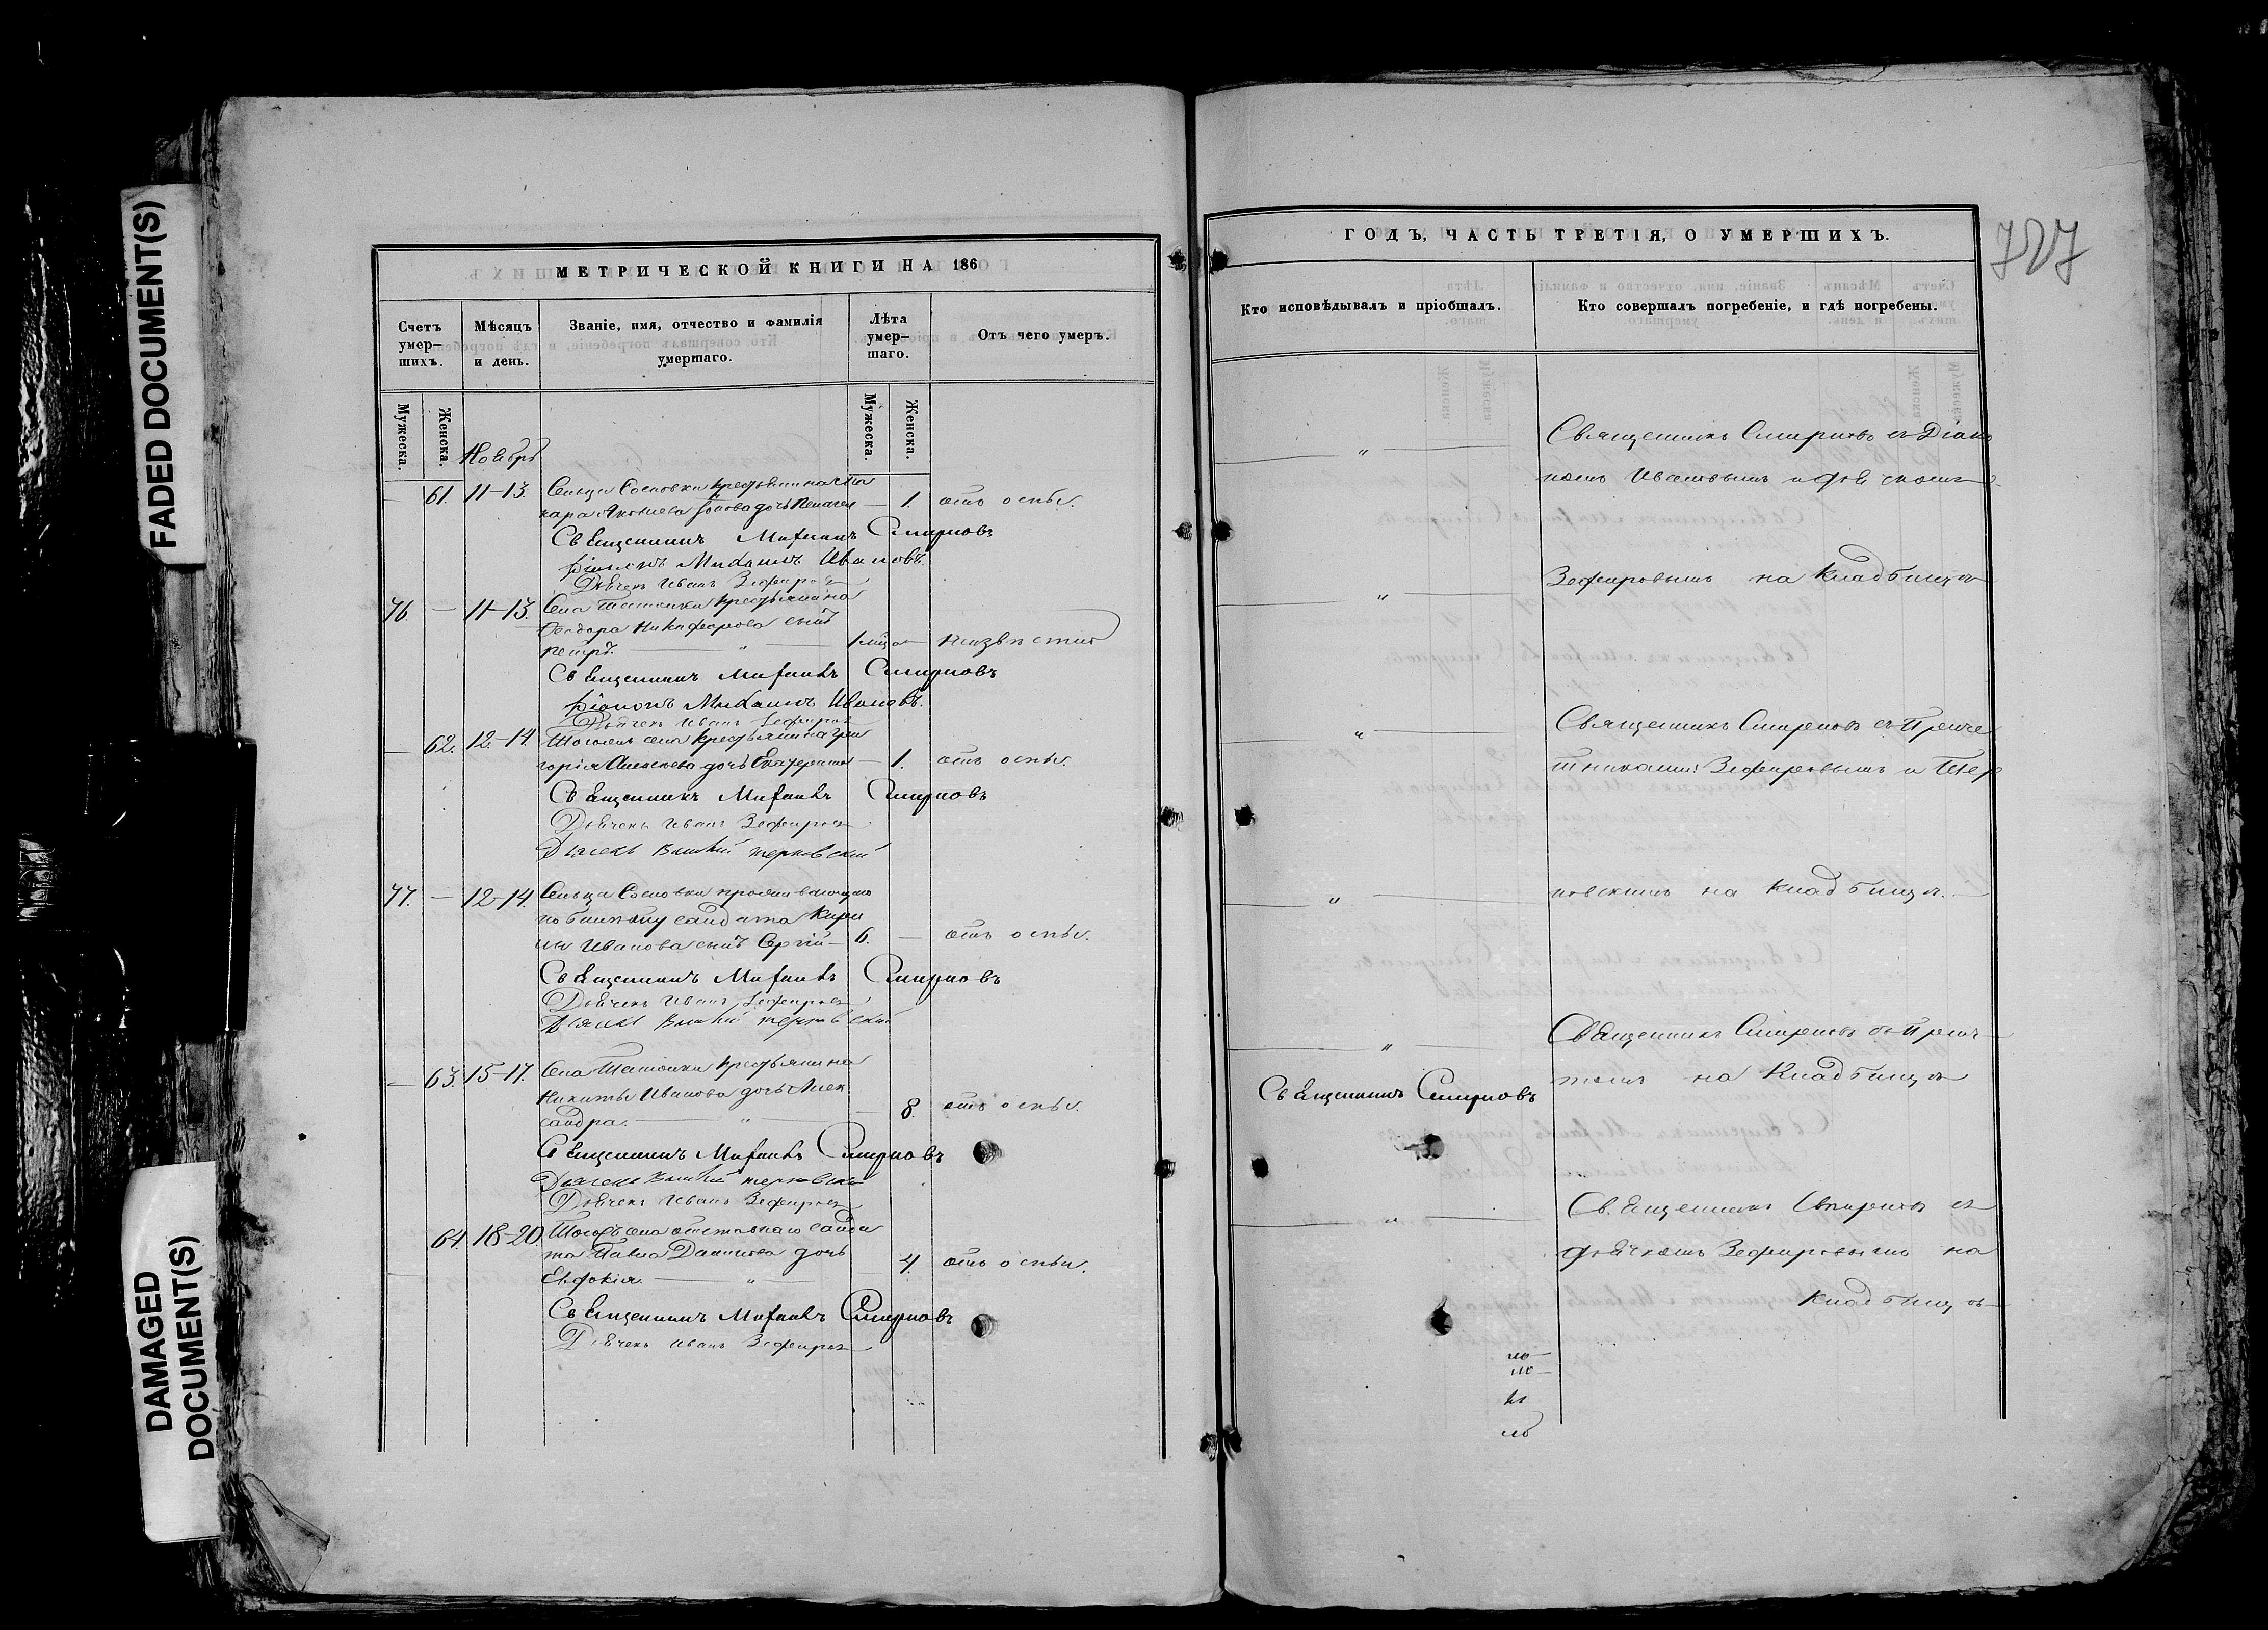 FADED DOCUMENT(S)
DAMAGED
DOCUMENT(S)
МЕТРИЧЕСКОЙ КНИГИ НА 186
Счетъ умер-
шихъ.
Мѣсяцъ
и день.
Званіе, имя, отчество и фамилія
умершаго.
Лѣта
умер-
шаго.
Отъ чего умеръ.
Мужеска.
Женска.
Мужеска.
Женска.
Ноябрь
61. 11-13. Сельца Сосновки крестьянина
дочь Пелагея — 1. отъ оспы.
Священникъ Михаилъ Смирновъ
Діаконъ Михаилъ Ивановъ.
Дьячекъ Иванъ Зефировъ
76. — 11-13. Села крестьянина
Ѳеодора Никифорова сынъ
Петръ. — " — неизвѣстно
Священникъ Михаилъ Смирновъ
Діаконъ Михаилъ Ивановъ.
Дьячекъ Иванъ Зефировъ
— 62. 12-14. Тогожъ села крестьянина Гри
горія Алексѣева дочь Екатерина — 1. отъ оспы.
Священникъ Михаилъ Смирновъ
Дьячекъ Иванъ Зефировъ
Дьячекъ Терновскій
77. — 12-14. Сельца Сосновки проживающаго
по билету солдата Кири
лы Иванова сынъ Сергій — 6. — отъ оспы.
Священникъ Михаилъ Смирновъ
Дьячекъ Иванъ Зефировъ
Дьячекъ Терновскій
— 63. 15-17. Села крестьянина
Никиты Иванова дочь Алек
сандра. — " — 8. отъ оспы.
Священникъ Михаилъ Смирновъ
Дьячекъ Терновскій
Дьячекъ Иванъ Зефировъ
64. 18-20. Тогожъ села отставнаго солда
та Павла Данилова дочь
Евдокія. — " — 4. отъ оспы.
Священникъ Михаилъ Смирновъ
Дьячекъ Иванъ Зефировъ
ГОДЪ, ЧАСТЬ ТРЕТІЯ, О УМЕРШИХЪ.
727
Кто исповѣдывалъ и пріобщалъ.
Кто совершалъ погребеніе, и гдѣ погребены.
Священникъ Смирновъ съ Діако
номъ Ивановымъ и дьячкомъ
— " —
Зефировымъ на кладбищѣ
— " —
Священникъ Смирновъ съ Приче
— " —
тниками: Зефировымъ и Тер
новскимъ на кладбищѣ.
— " —
Священникъ Смирновъ съ Прич—
— " —
томъ на кладбищѣ
Священникъ Смирновъ
Священникъ Смирновъ съ
— " —
дьячкомъ Зефировымъ на
кладбищѣ